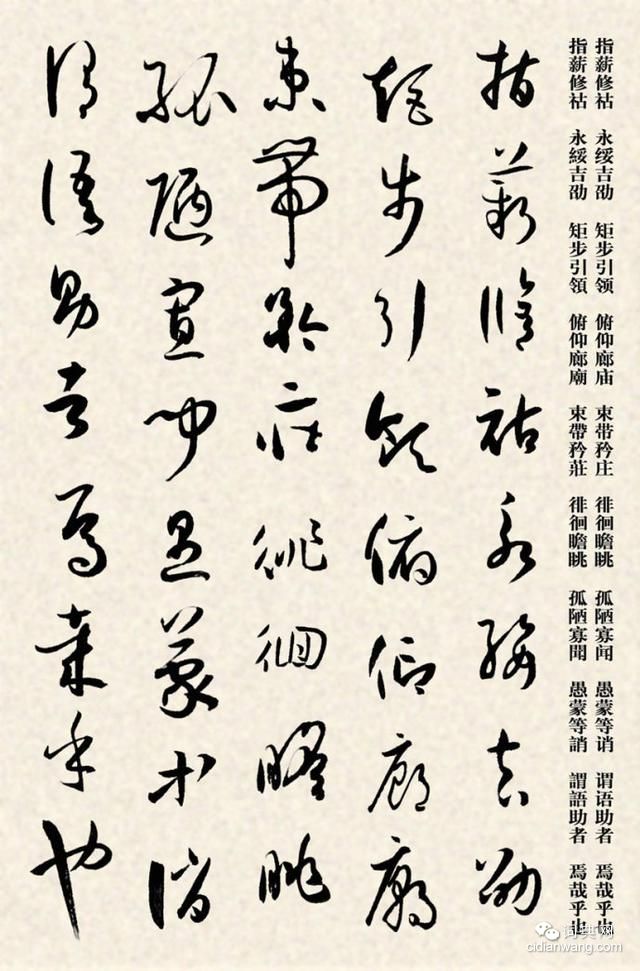 指薪修祜 永绥吉劭 矩步引领 俯仰廊庙 束带矜庄 徘徊瞻眺 孤陋寡闻 愚蒙等诮 谓语助者 焉哉乎也
指薪修祜 永綏吉劭 矩步引領 俯仰廊廟 束帶矜莊 徘徊瞻眺 孤陋寡聞 愚蒙等誚 謂語助者 焉哉乎也
指薪修祜永綏吉劭
矩步引領俯仰廊廟
束帶矜莊徘徊瞻眺
孤陋寡聞愚蒙等誚
謂語助者焉哉乎也
词典网
cidianwang.com